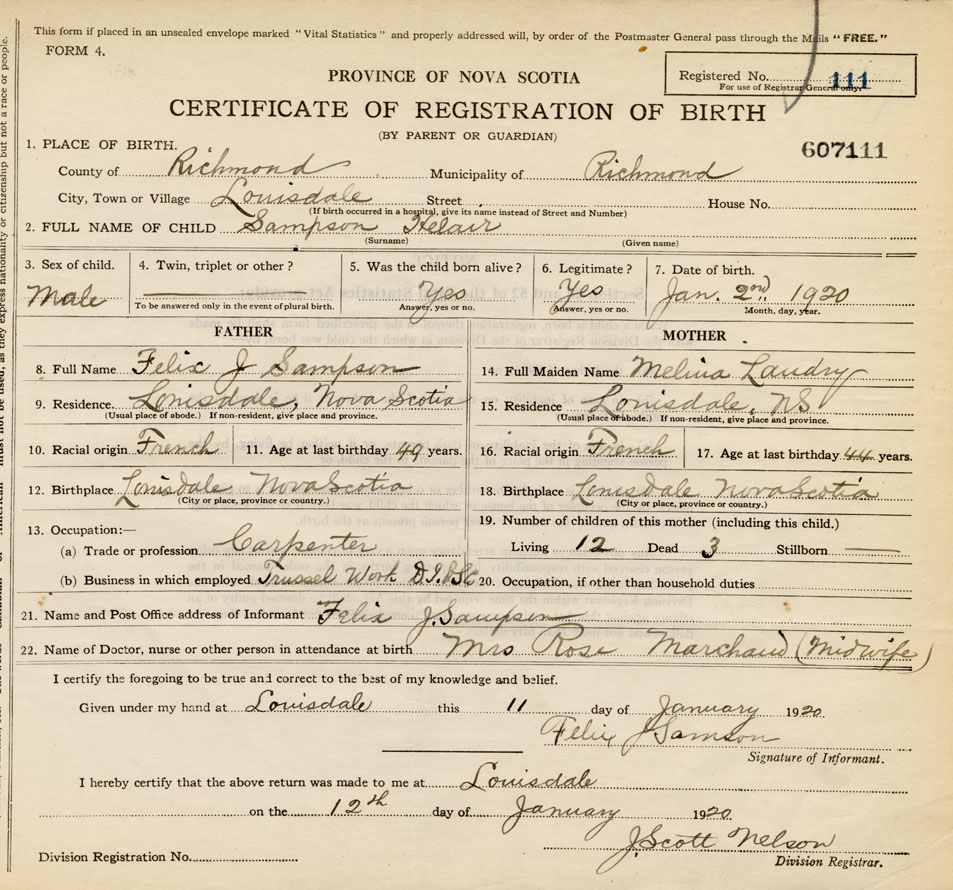 This form if placed in an unsealed envelope marked "Vital Statistics" and properly addressed will, by order of the Postmaster General pass through the Mails "FREE."
FORM 4.
PROVINCE OF NOVA SCOTIA
Registered No. 111
For use of Registrar General only.
CERTIFICATE OF REGISTRATION OF BIRTH
(BY PARENT OR GUARDIAN)
607111
1. PLACE OF BIRTH.
County of Richmond Municipality of Richmond
City, Town or Village Louisdale Street House No.
(If birth occurred in a hospital, give its name instead of Street and Number)
2. FULL NAME OF CHILD Sampson Helair
(Surname) (Given name)
3. Sex of child. 4. Twin, triplet or other? 5. Was the child born alive? 6. Legitimate? 7. Date of birth.
Male Yes Yes Jan. 2nd. 1920
To be answered only in the event of plural birth. Answer, yes or no. Answer, yes or no. Month, day, year.
FATHER MOTHER
8. Full Name Felix J Sampson 14. Full Maiden Name Melina Landry
9. Residence. Louisdale, Nova Scotia 15. Residence Louisdale, NS
(Usual place of abode.) If non-resident, give place and province. (Usual place of abode.) If non-resident, give place and province.
10. Racial origin French 11. Age at last birthday 49 years. 16. Racial origin French 17. Age at last birthday 44 years.
12. Birthplace Louisdale Nova Scotia 18. Birthplace Louisdale Nova Scotia
(City or place, province or country.) (City or place, province or country.)
13. Occupation:— 19. Number of children of this mother (including this child.)
(a) Trade or profession Carpenter Living 12 Dead 3 Stillborn —
(b) Business in which employed Work 20. Occupation, if other than household duties
21. Name and Post Office address of Informant Felix J. Sampson
22. Name of Doctor, nurse or other person in attendance at birth Mrs Rose Marchand (Midwife)
I certify the foregoing to be true and correct to the best of my knowledge and belief.
Given under my hand at Louisdale this 11 day of January 1920
Felix J Samson
Signature of Informant.
I hereby certify that the above return was made to me at Louisdale
on the 12th day of January 1920
J. Scott Nelson
Division Registration No. Division Registrar.